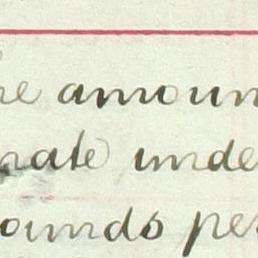 he amoun
nate unde
ounds per